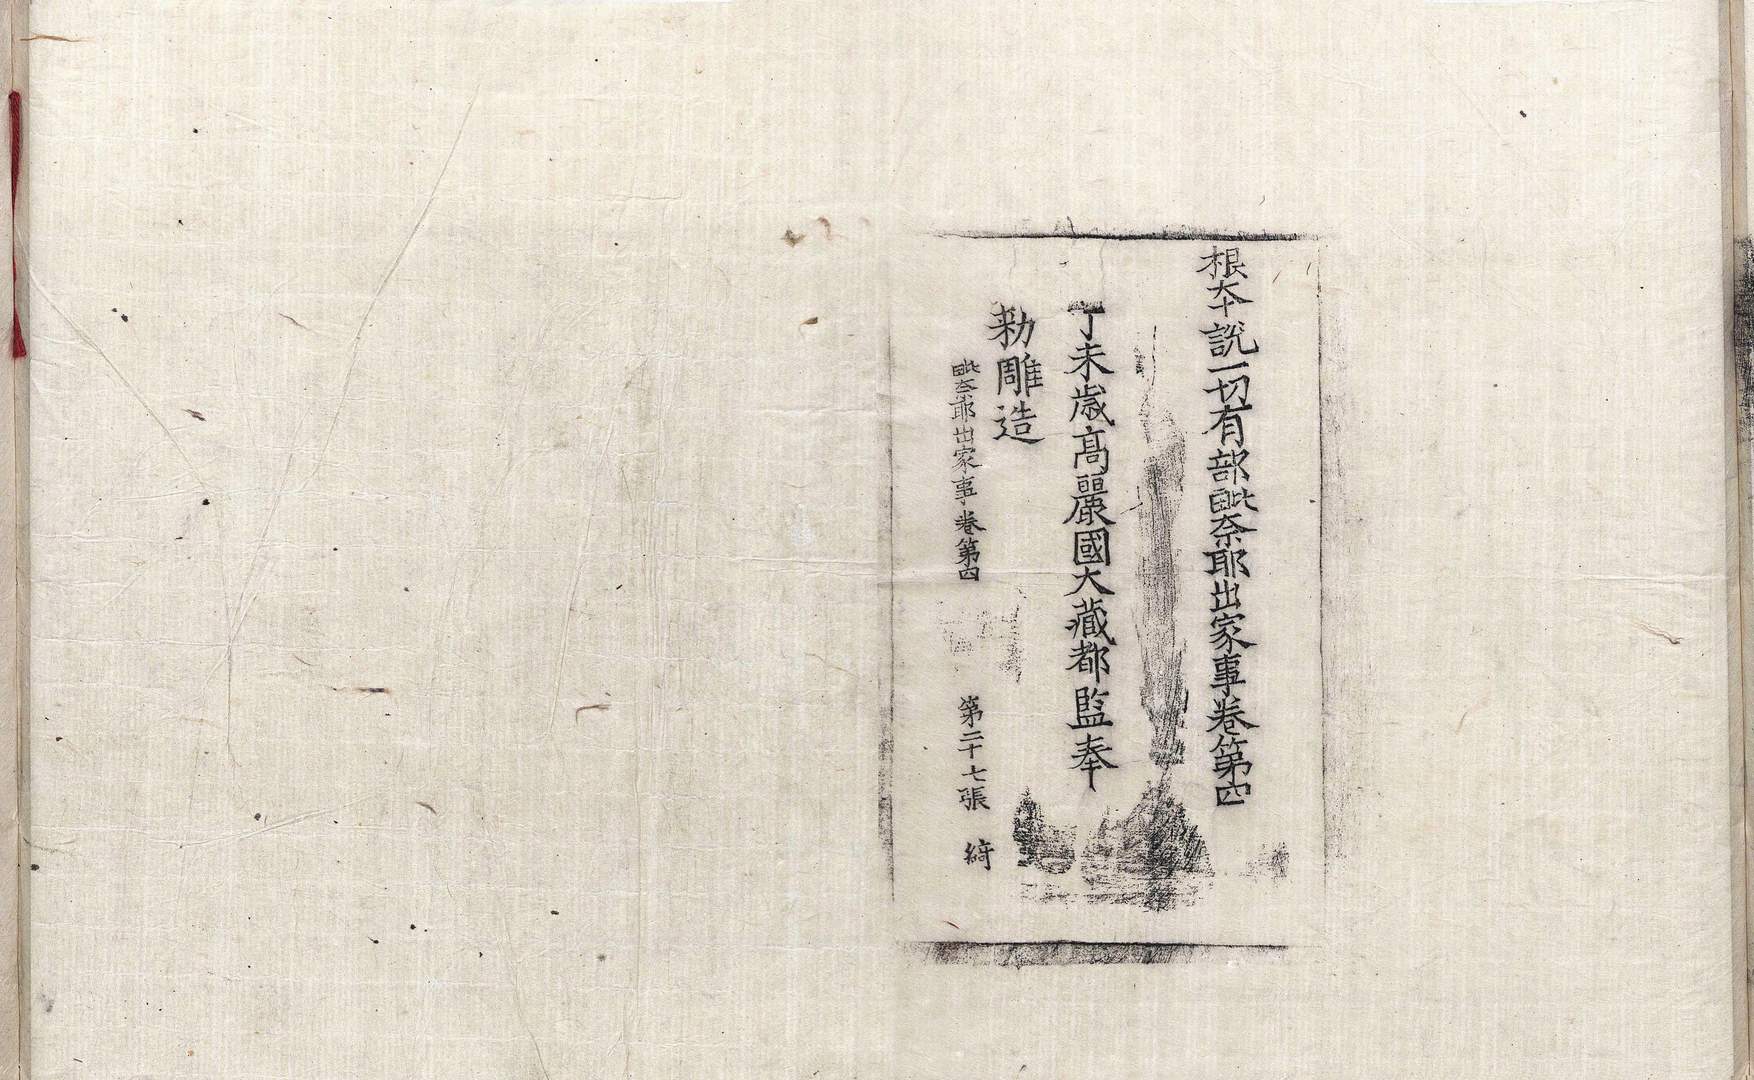 根夲說一切有部毗奈耶出家事卷第四
丁未歲高麗國大藏都監奉
勑雕造
毗奈耶出家事卷第四 第二十七張 綺